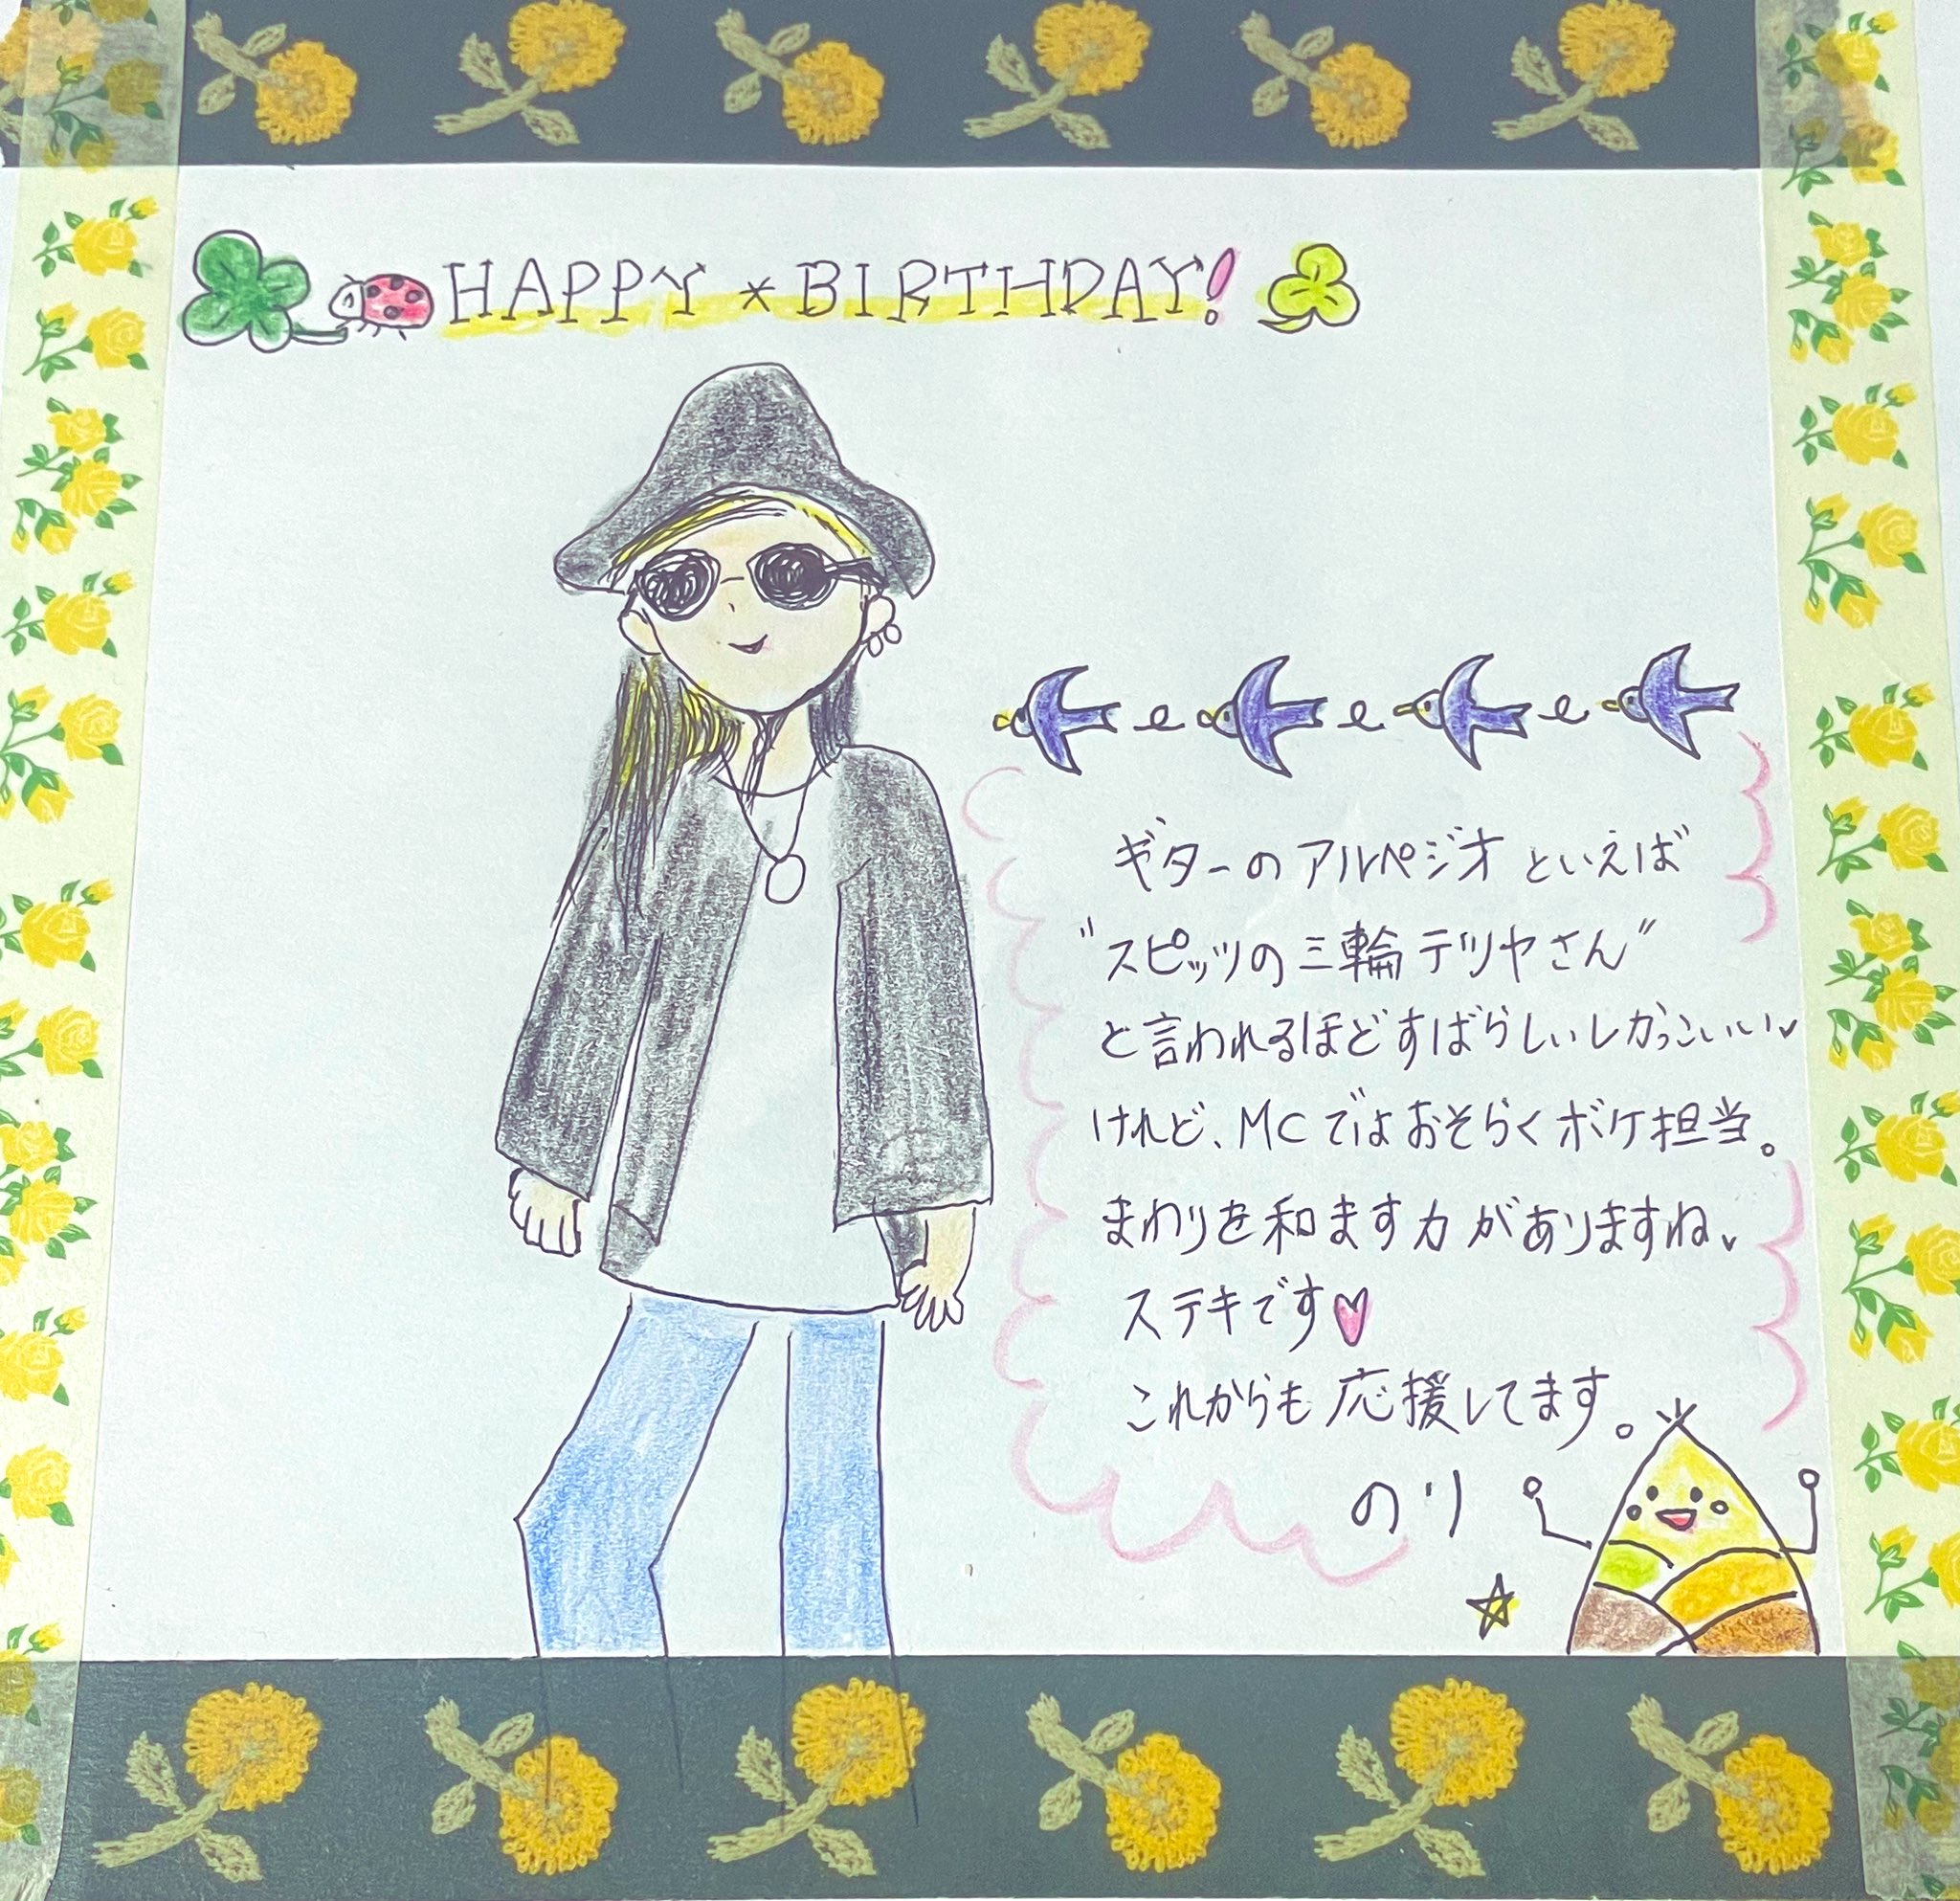 HAPPY * BIRTHDAY!
ギターのアルペジオといえば
"スピッツの三輪テツヤさん"
と言われるほどすばらしいしかっこいい✓
けれど、MCではおそらくボケ担当。
まわりを和ます力がありますね✓
ステキです♥
これからも応援してます。
のり